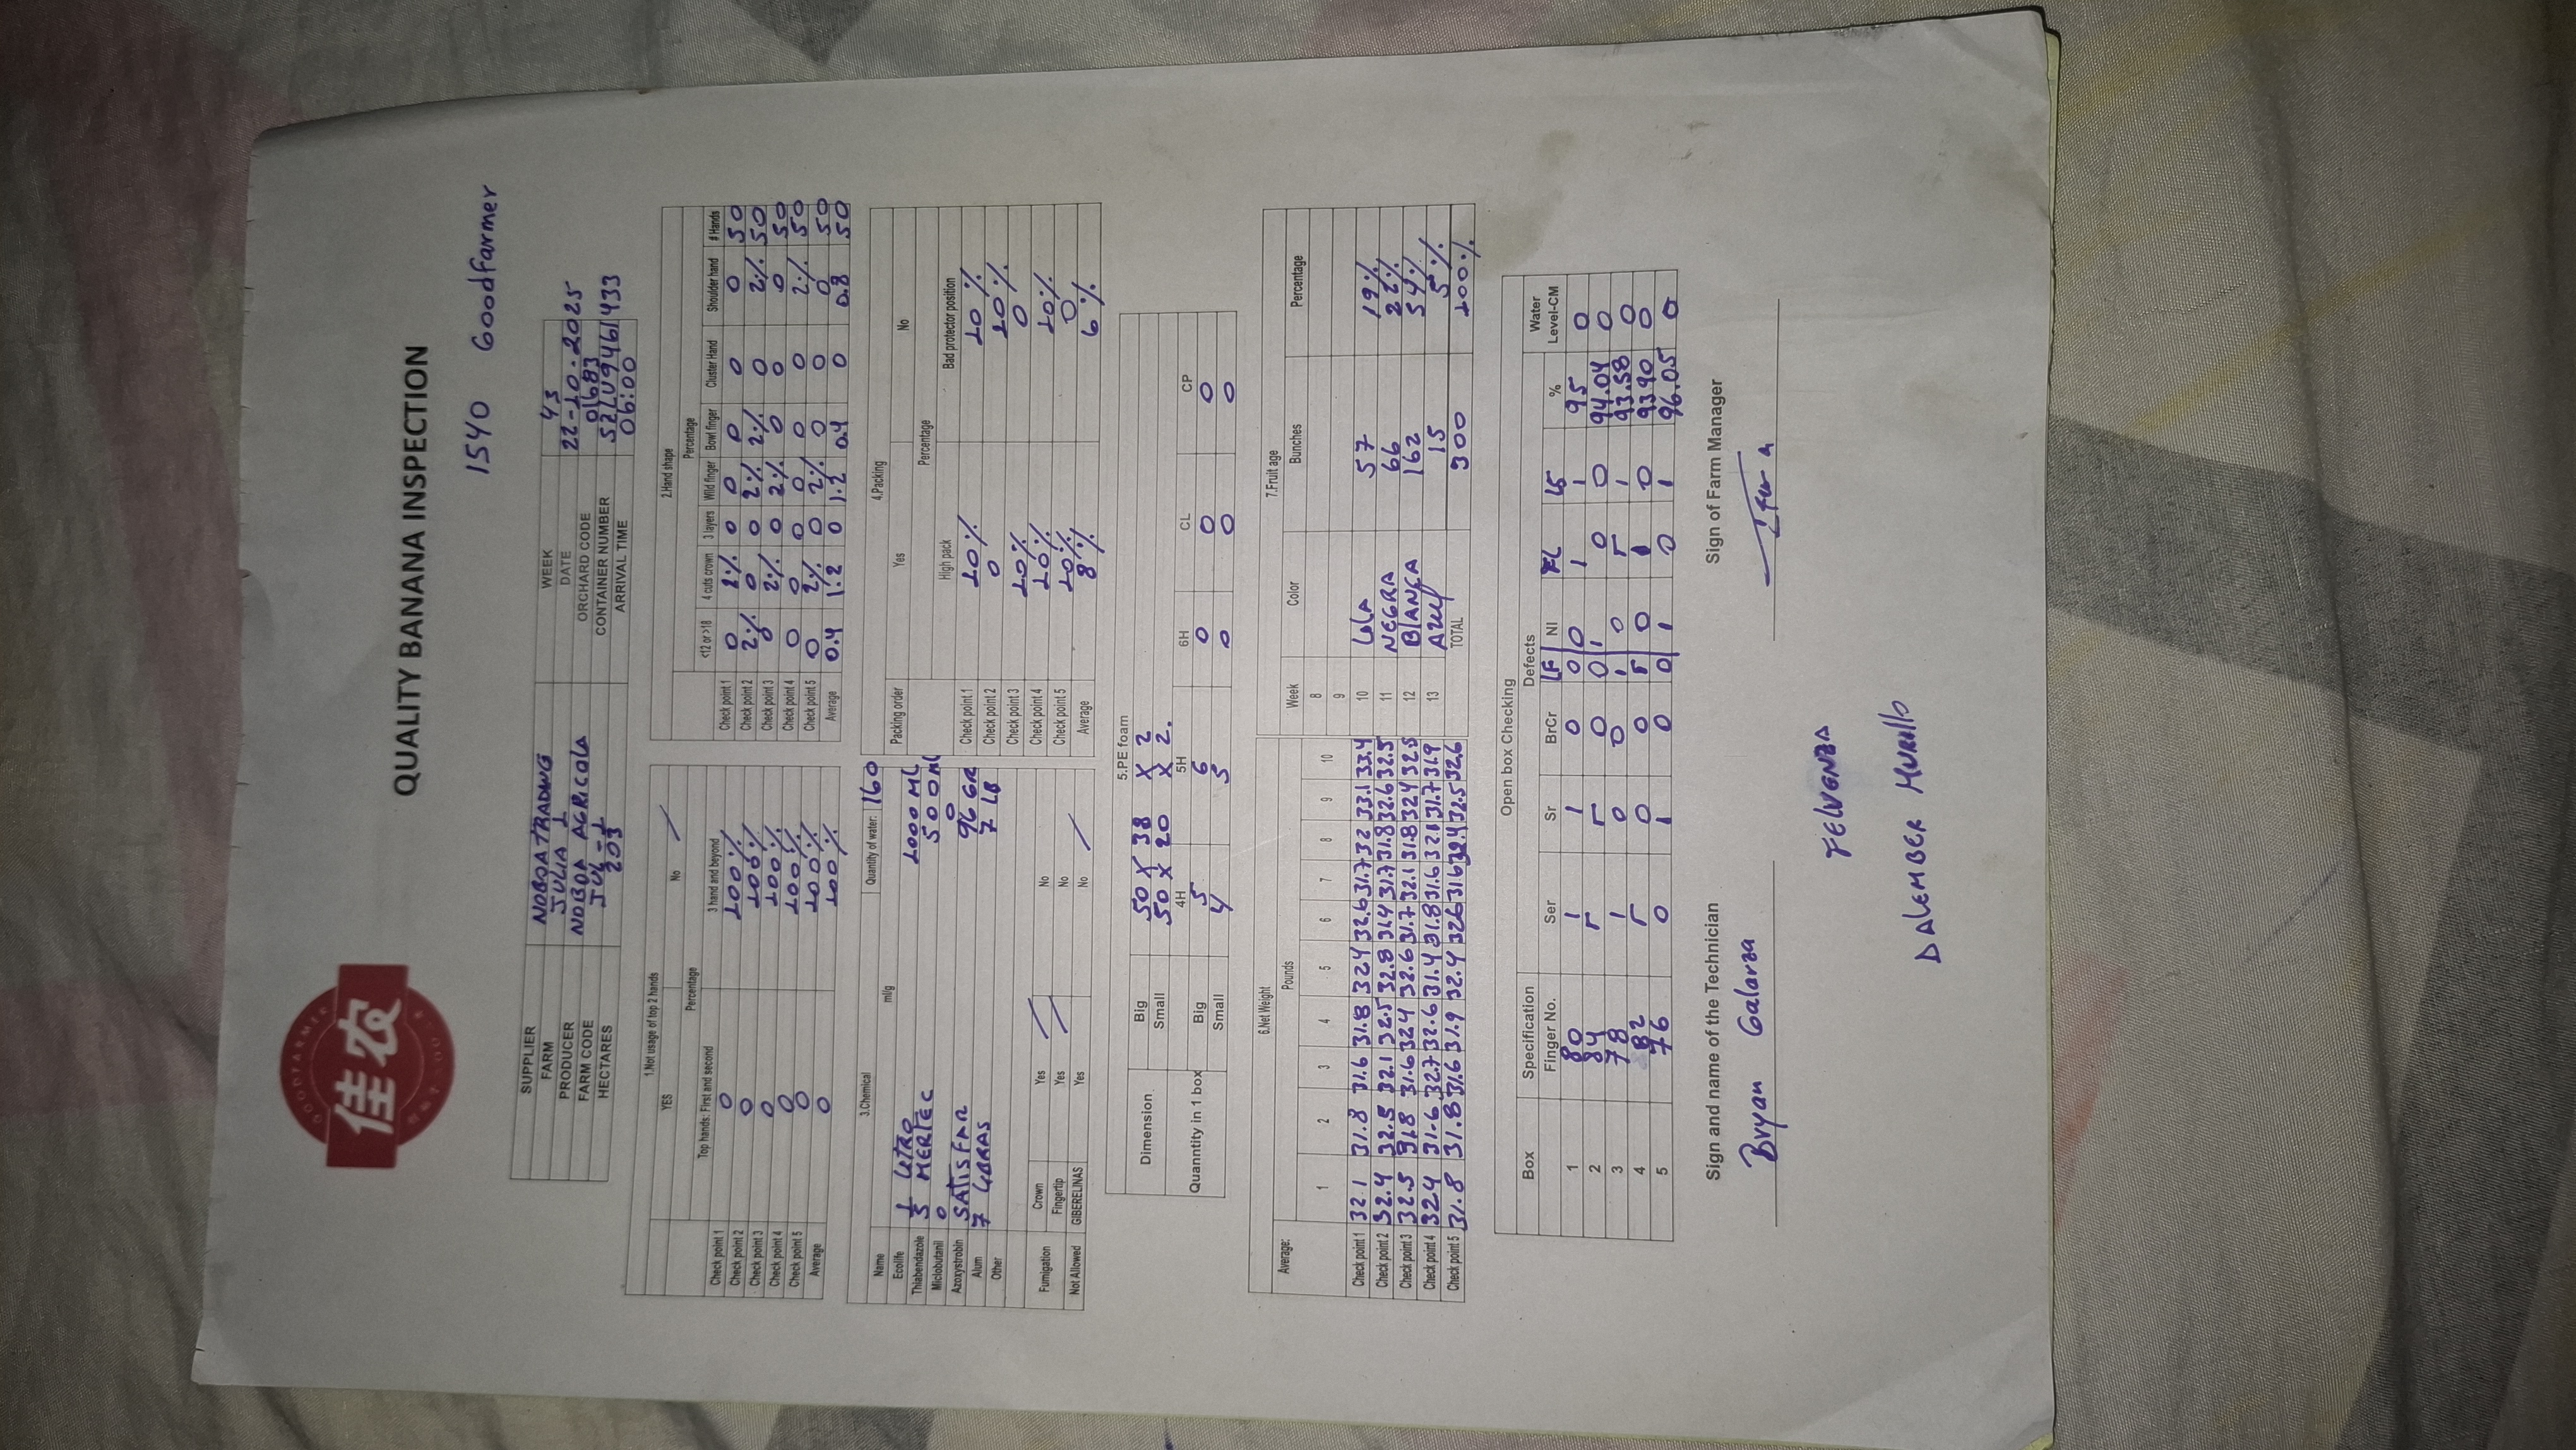 GOODFARMER
佳农
QUALITY BANANA INSPECTION
1540 Goodfarmer
SUPPLIER NOBOA TRADING WEEK 43
FARM JULIA 1 DATE 22-10-2025
PRODUCER NOBOA AGRICOLA ORCHARD CODE 01683
FARM CODE JUL-1 CONTAINER NUMBER SZLU9461433
HECTARES 203 ARRIVAL TIME 06:00
1.Not usage of top 2 hands
YES No /
Percentage
Top hands: First and second 3 hand and beyond
Check point 1 0 100%
Check point 2 0 100%
Check point 3 0 100%
Check point 4 0 100%
Check point 5 0 100%
Average 0 100%
2.Hand shape
Percentage
<12 or >18 4 cuts crown 3 layers Wild finger Bowl finger Cluster Hand Shoulder hand # Hands
Check point 1 0 2% 0 0 0 0 0 50
Check point 2 2% 0 0 2% 2% 0 2% 50
Check point 3 0 2% 0 2% 0 0 0 50
Check point 4 0 0 0 0 0 0 2% 50
Check point 5 0 2% 0 2% 0 0 0 50
Average 0.4 1.2 0 1.2 0.4 0 0.8 50
3.Chemical Quantity of water: 160
Name ml/g
Ecolife 1 LITRO 1000 ML
Thiabendazole 5 MERTEC 500ML
Miclobutanil 0 0
Azoxystrobin SATISFAR 96 GR
Alum 7 LIBRAS 7 LB
Other
Fumigation Crown Yes / No
Fingertip Yes / No
Not Allowed GIBERELINAS Yes No /
4.Packing
Packing order Yes No
Percentage
High pack Bad protector position
Check point 1 10% 10%
Check point 2 0 10%
Check point 3 10% 0
Check point 4 10% 10%
Check point 5 10% 0
Average 8% 6%
5.PE foam
Dimension Big 50 X 38 X 2
Small 50 X 20 X 2.
4H 5H 6H CL CP
Quanntity in 1 box Big 5 6 0 0 0
Small 4 5 0 0 0
6.Net Weight
Average: Pounds
1 2 3 4 5 6 7 8 9 10
Check point 1 32.1 31.8 31.6 31.8 32.4 32.6 31.7 32 33.1 33.4
Check point 2 32.4 32.5 32.1 32.5 32.8 31.4 31.7 31.8 32.6 32.5
Check point 3 32.5 31.8 31.6 32.4 32.6 31.7 32.1 31.8 32.4 32.5
Check point 4 32.4 31.6 32.7 32.6 31.4 31.8 31.6 32.1 31.7 31.9
Check point 5 31.8 31.8 31.6 31.9 32.4 32.6 31.6 32.4 32.5 32.6
7.Fruit age
Week Color Bunches Percentage
8
9
10 LILA 57 19%
11 NEGRA 66 22%
12 BLANCA 162 54%
13 AZUL 15 5%
TOTAL 300 100%
Open box Checking
Box Specification Defects Water
Finger No. Ser Sr BrCr LF NI FL LS % Level-CM
1 80 1 1 0 0 0 1 1 95 0
2 84 0 1 0 0 94.04 0
3 78 1 0 0 1 0 1 93.58 0
4 82 0 0 0 1 0 93.90 0
5 76 0 1 0 0 1 0 1 96.05 0
Sign and name of the Technician Sign of Farm Manager
Bryan Galarza
FELVENZA
DALEMBER MURILLO